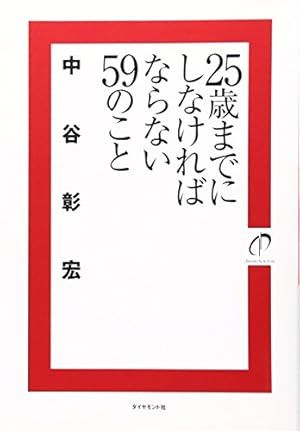 25歳までに
しなければ
ならない
59のこと
中谷彰宏
ダイヤモンド社